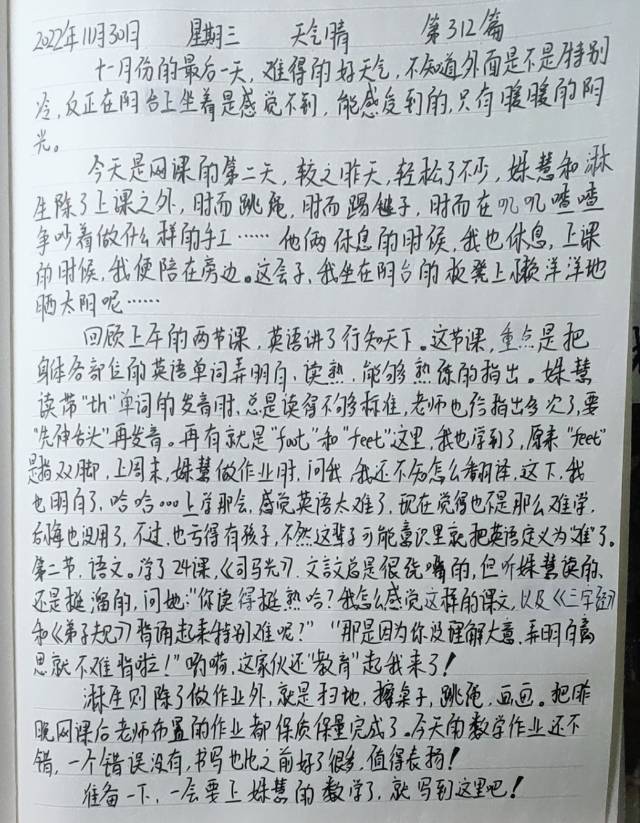 2022年11月30日 星期三 天气晴 第312篇
十一月份的最后一天，难得的好天气，不知道外面是不是特别
冷，反正在阳台上坐着是感觉不到，能感受到的，只有暖暖的阳
光。
今天是网课的第二天，较之昨天，轻松了不少，姝慧和淋
生除了上课之外，时而跳绳，时而踢毽子，时而在叽叽喳喳
争吵着做什么样的手工……他俩休息的时候，我也休息，上课
的时候，我便陪在旁边。这会子，我坐在阳台的板凳上懒洋洋地
晒太阳呢……
回顾上午的两节课，英语讲了行知天下。这节课，重点是把
身体各部位的英语单词弄明白、读熟，能够熟练的指出。姝慧
读带"th"单词的发音时，总是读得不够标准，老师也给指出多次了，要
"先伸舌头"再发音。再有就是"foot"和"feet"这里，我也学到了，原来"feet"
是指双脚，上周末，姝慧做作业时，问我，我还不知怎么翻译，这下，我
也明白了，哈哈…上学那会，感觉英语太难了，现在觉得也不是那么难学，
后悔也没用了，不过，也亏得有孩子，不然这辈子可能意识里就把英语定义为"难"了。
第二节，语文。学了24课，《司马光》，文言文总是很绕嘴的，但听姝慧读的，
还是挺溜的，问她："你读得挺熟哈？我怎么感觉这样的课文，以及《三字经》
和《弟子规》背诵起来特别难呢？""那是因为你没理解大意，弄明白意
思就不难背啦！"哟嗬，这家伙还"教育"起我来了！
淋生则除了做作业外，就是扫地，擦桌子，跳绳，画画。把昨
晚网课后老师布置的作业都保质保量完成了。今天的数学作业还不
错，一个错误没有，书写也比之前好了很多，值得表扬！
准备一下，一会要上姝慧的数学了，就写到这里吧！